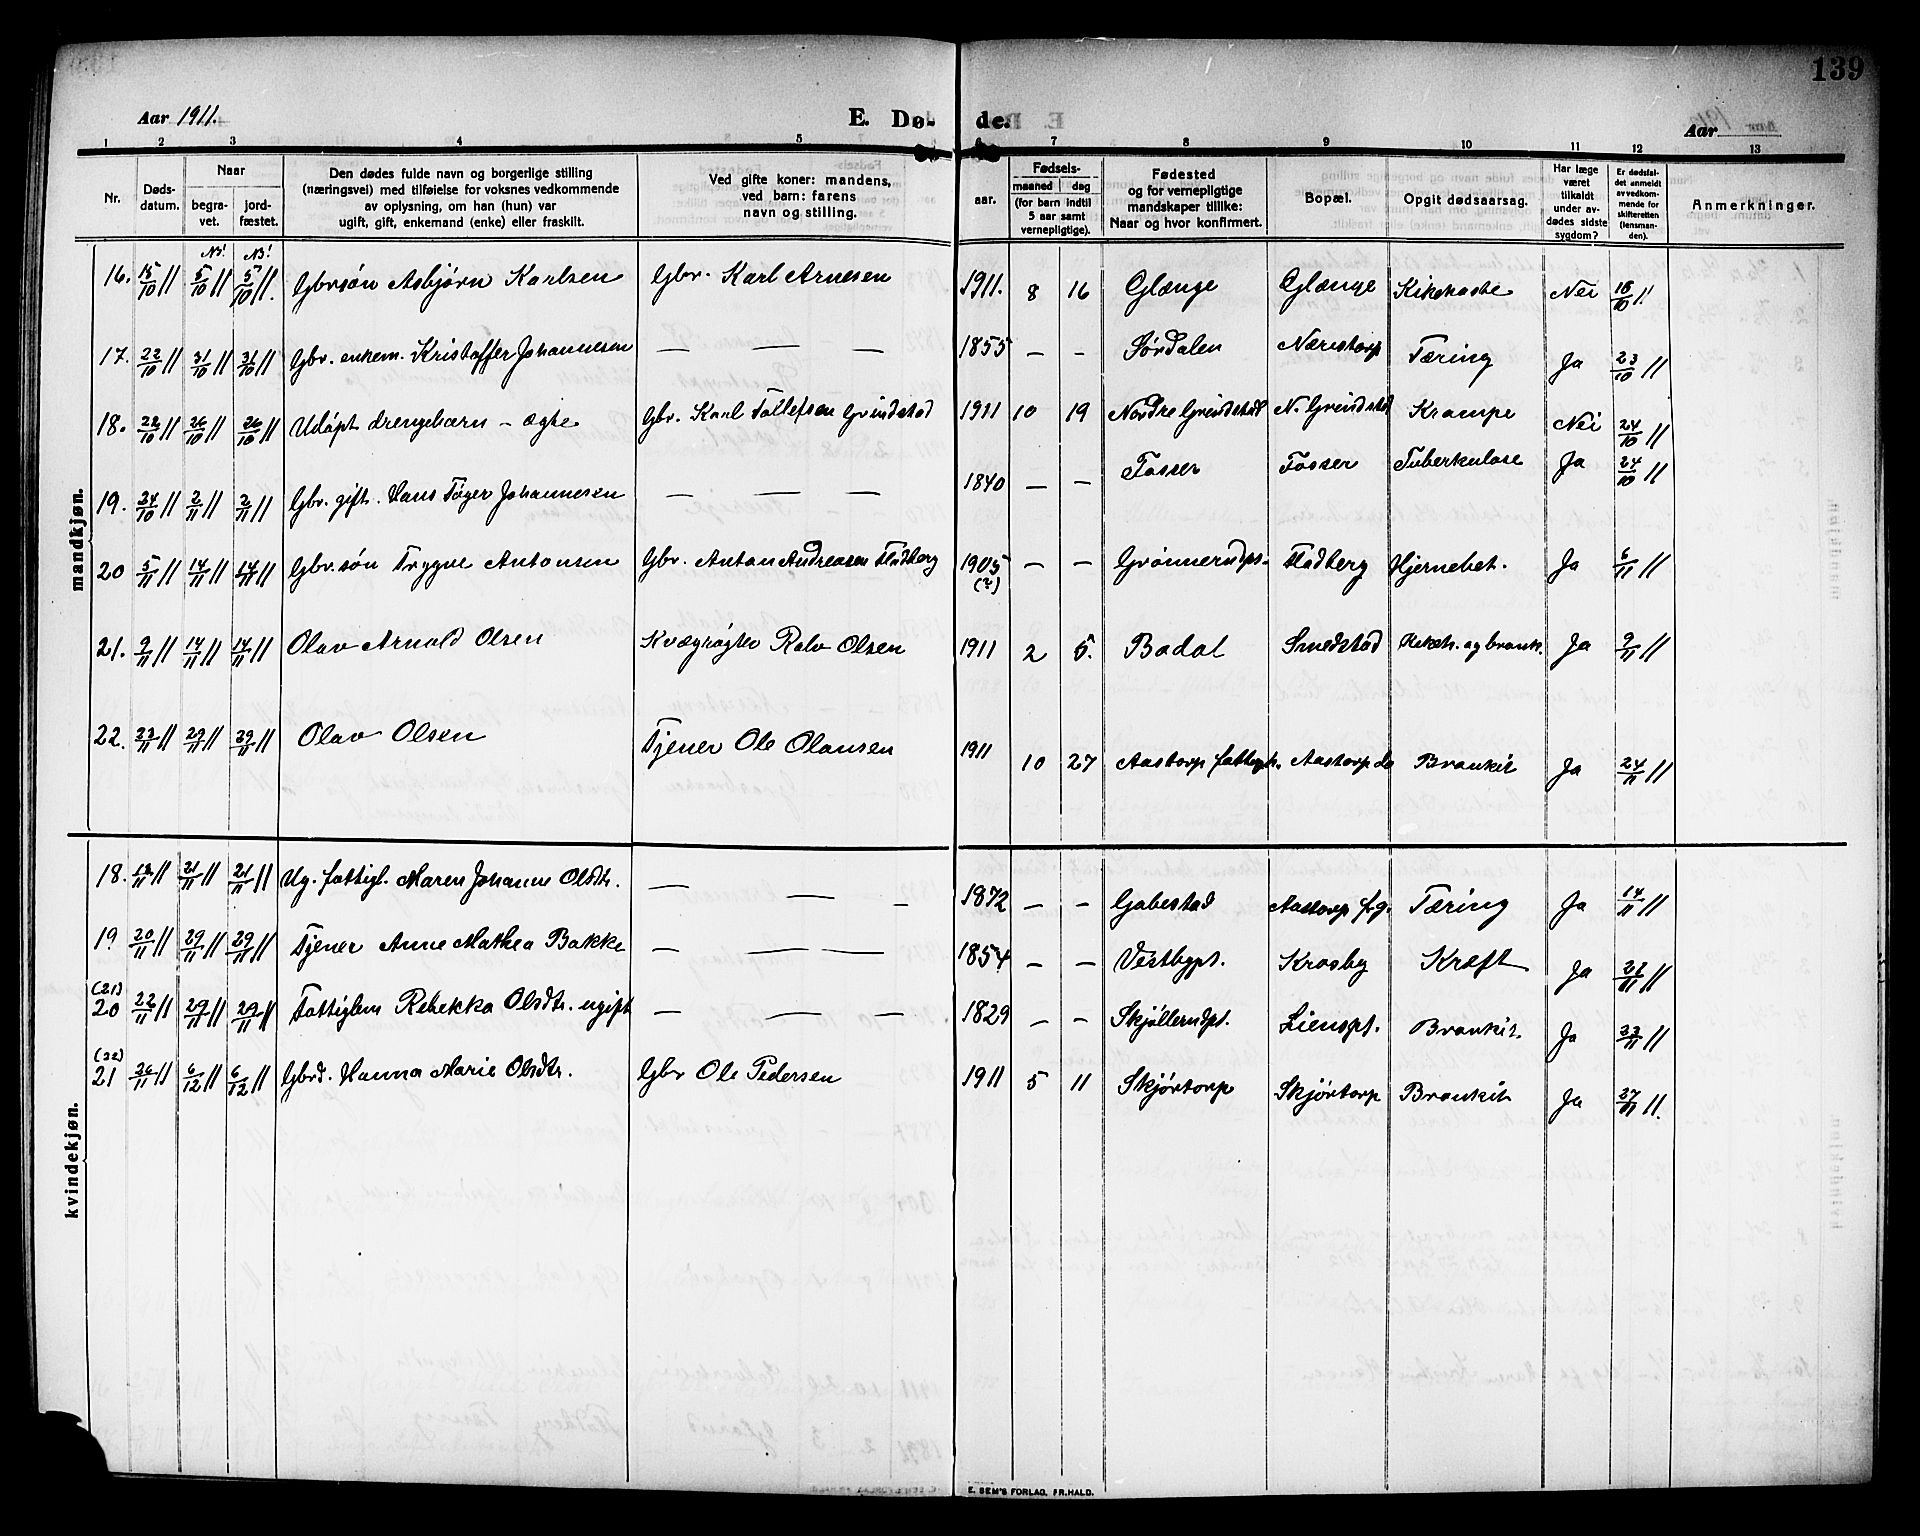 139
Aar 1911. E. Dø- de. Aar
1 2 3 4 5 6 7 8 9 10 11 12 13
Nr.
Døds-
datum.
Naar
begra-
vet.
jord-
fæstet.
Den dødes fulde navn og borgerlige stilling
(næringsvei) med tilføielse for voksnes vedkommende
av oplysning, om han (hun) var
ugift, gift, enkemand (enke) eller fraskilt.
Ved gifte koner: mandens,
ved barn: farens
navn og stilling.
Fødsels-
aar.
maaned dag
(for barn indtil
5 aar samt
vernepligtige).
Fødested
og for vernepligtige
mandskaper tillike:
Naar og hvor konfirmert.
Bopæl.
Opgit dødsaarsag.
Har læge
været
tilkaldt
under av-
dødes sidste
sygdom?
Er dødsfal-
det anmeldt
av vedkom-
mende for
skifteretten
(lensman-
den).
Anmerkninger.
mandkjøn.
N3! N3!
16. 15/10 11 5/10 11 5/10 11. Gbrsøn Asbjørn Karlsen Gbr. Karl Arnesen 1911. 8 16 Glænge Glænge Kikehoste Nei 16/10 11
17. 22/10 11 31/10 11 31/10 11 Gbr. enkem. Kristoffer Johannesen — — — 1855 – – Sørdalen Nærestorp Tæring Ja 23/10 11
18. 22/10 11 26/10 11 26/10 11 Udøpt drengebarn – ægte Gbr. Karl Tollefsen Grindstad 1911 10 19 Nordre Grindstad N. Grindstad Krampe Nei 24/10 11
19. 24/10 11 2/11 11 2/11 11 Gbr. gift. Hans Tøger Johannesen — — — 1840 – – Fosser Fosser Tuberkulose Ja 24/10 11
20 5/11 11 14/11 11 14/11 11 Gbr.søn Trygve Antonsen Gbr. Anton Andreasen Fladberg 1905 (?) – – Grønnerudps. Fladberg Hjernebet. Ja 6/11 11
21. 9/11 11 14/11 11 14/11 11 Olav Arnold Olsen Kvægrøgter Rolv Olsen 1911 2 5. Bodal Smedstad Kikeh. og bronk. Ja 9/11 11
22. 23/11 11 29/11 11 29/11 11 Olav Olsen Tjener Ole Olausen 1911 10 27 Aastorp fattigh. Aastorp do Bronkit Ja 24/11 11
kvindekjøn.
18. 12/11 11 21/11 11 21/11 11 Ug. fattigl. Maren Johanne Olsdtr. — — – 1872 – – Gabestad Aastorp f.g. Tæring Ja 14/11 11
19. 20/11 11 29/11 11 29/11 11 Tjener Anne Mathea Bakke – — — 1854 – – Vestbypt. Krosby Kræft Ja 22/11 11
(21)
20 22/11 11 29/11 11 29/11 11 Fattiglem Rebekka Olsdtr. ugift – — – 1829 – – Skjøllerudpt. Lienspt. Bronkit. Ja 23/11 11
(22)
21 26/11 11 6/12 11 6/12 11 Gbrd. Hanna Marie Olsdtr. Gbr Ole Pedersen 1911 5 11 Skjørtorp Skjørtorp Bronkit Ja 27/11 11.
E. SEM'S FORLAG, FR.HALD.